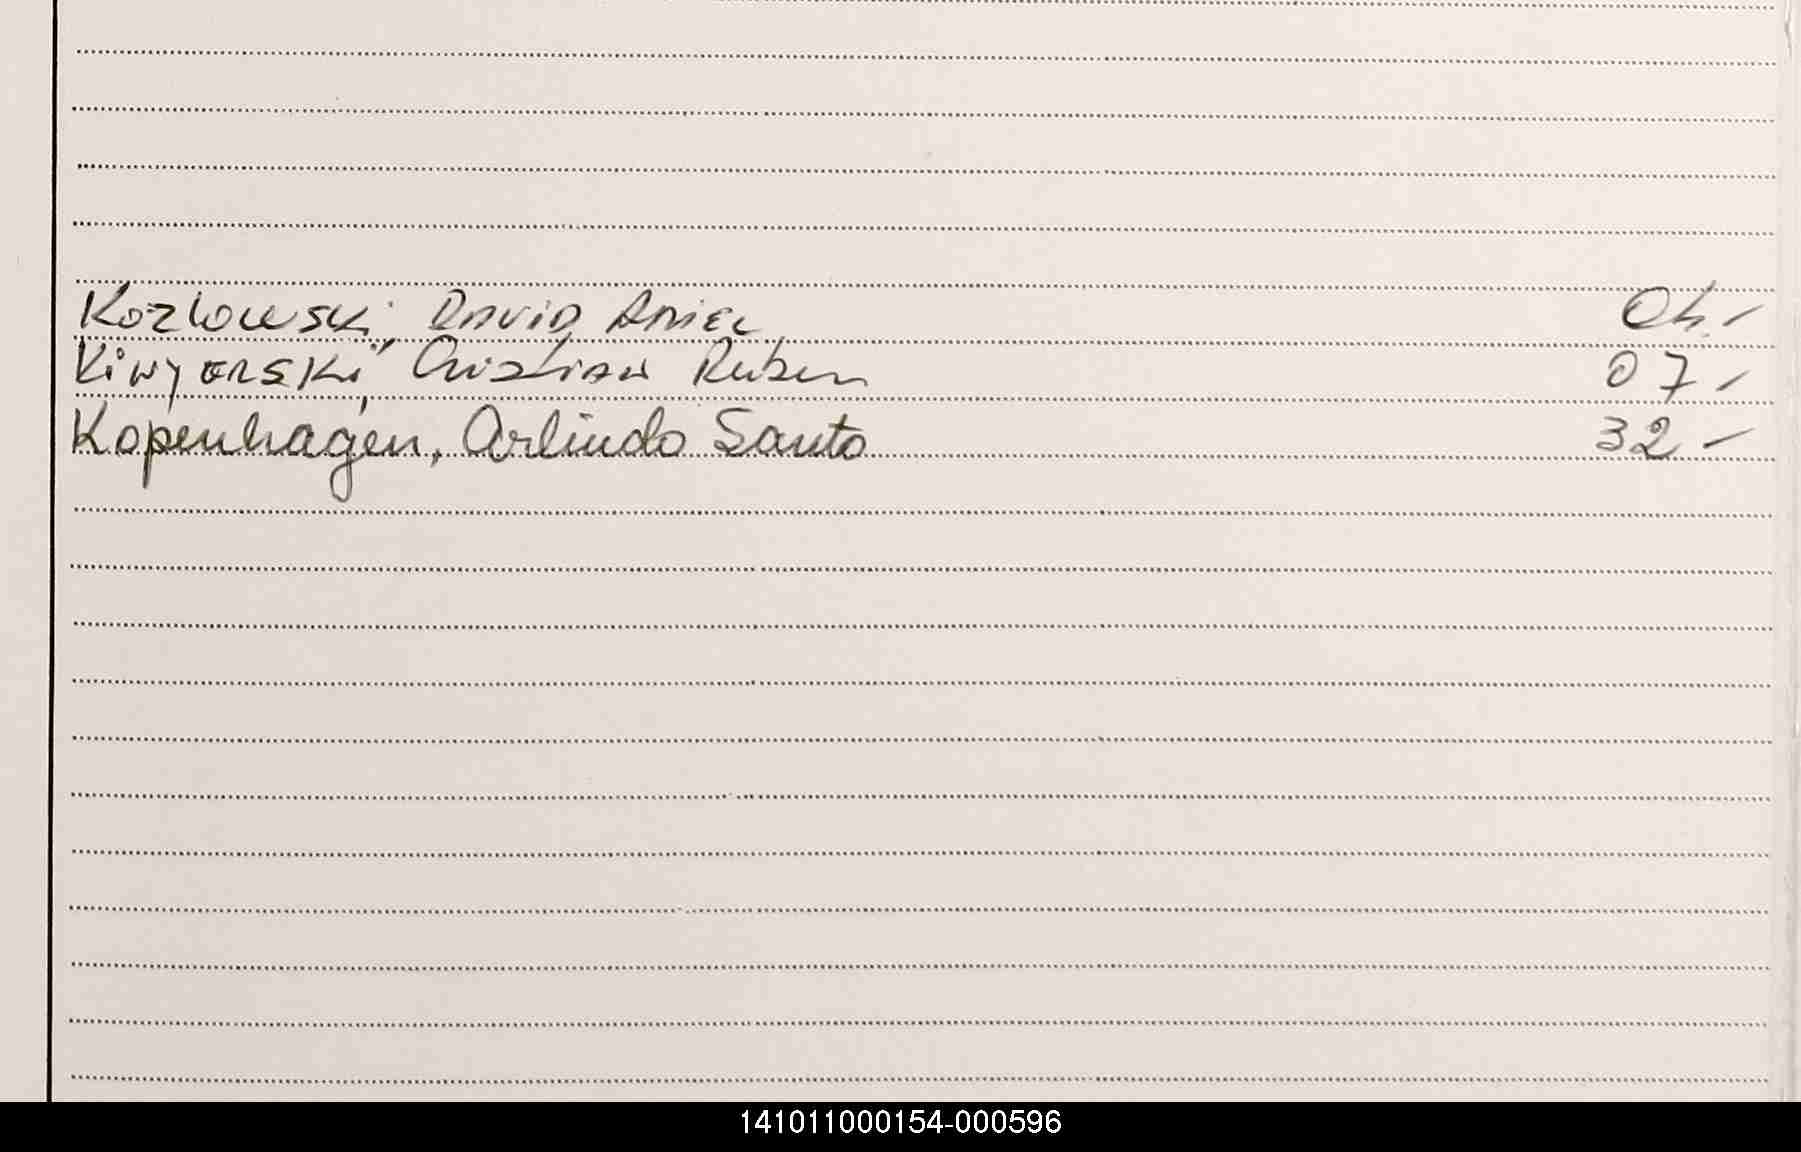 Kozlowski, David Daniel 04.-
Kiwyerski, Cristian Ruben 07-
Kopenhagen, Arlindo Santo 32-
141011000154-000596